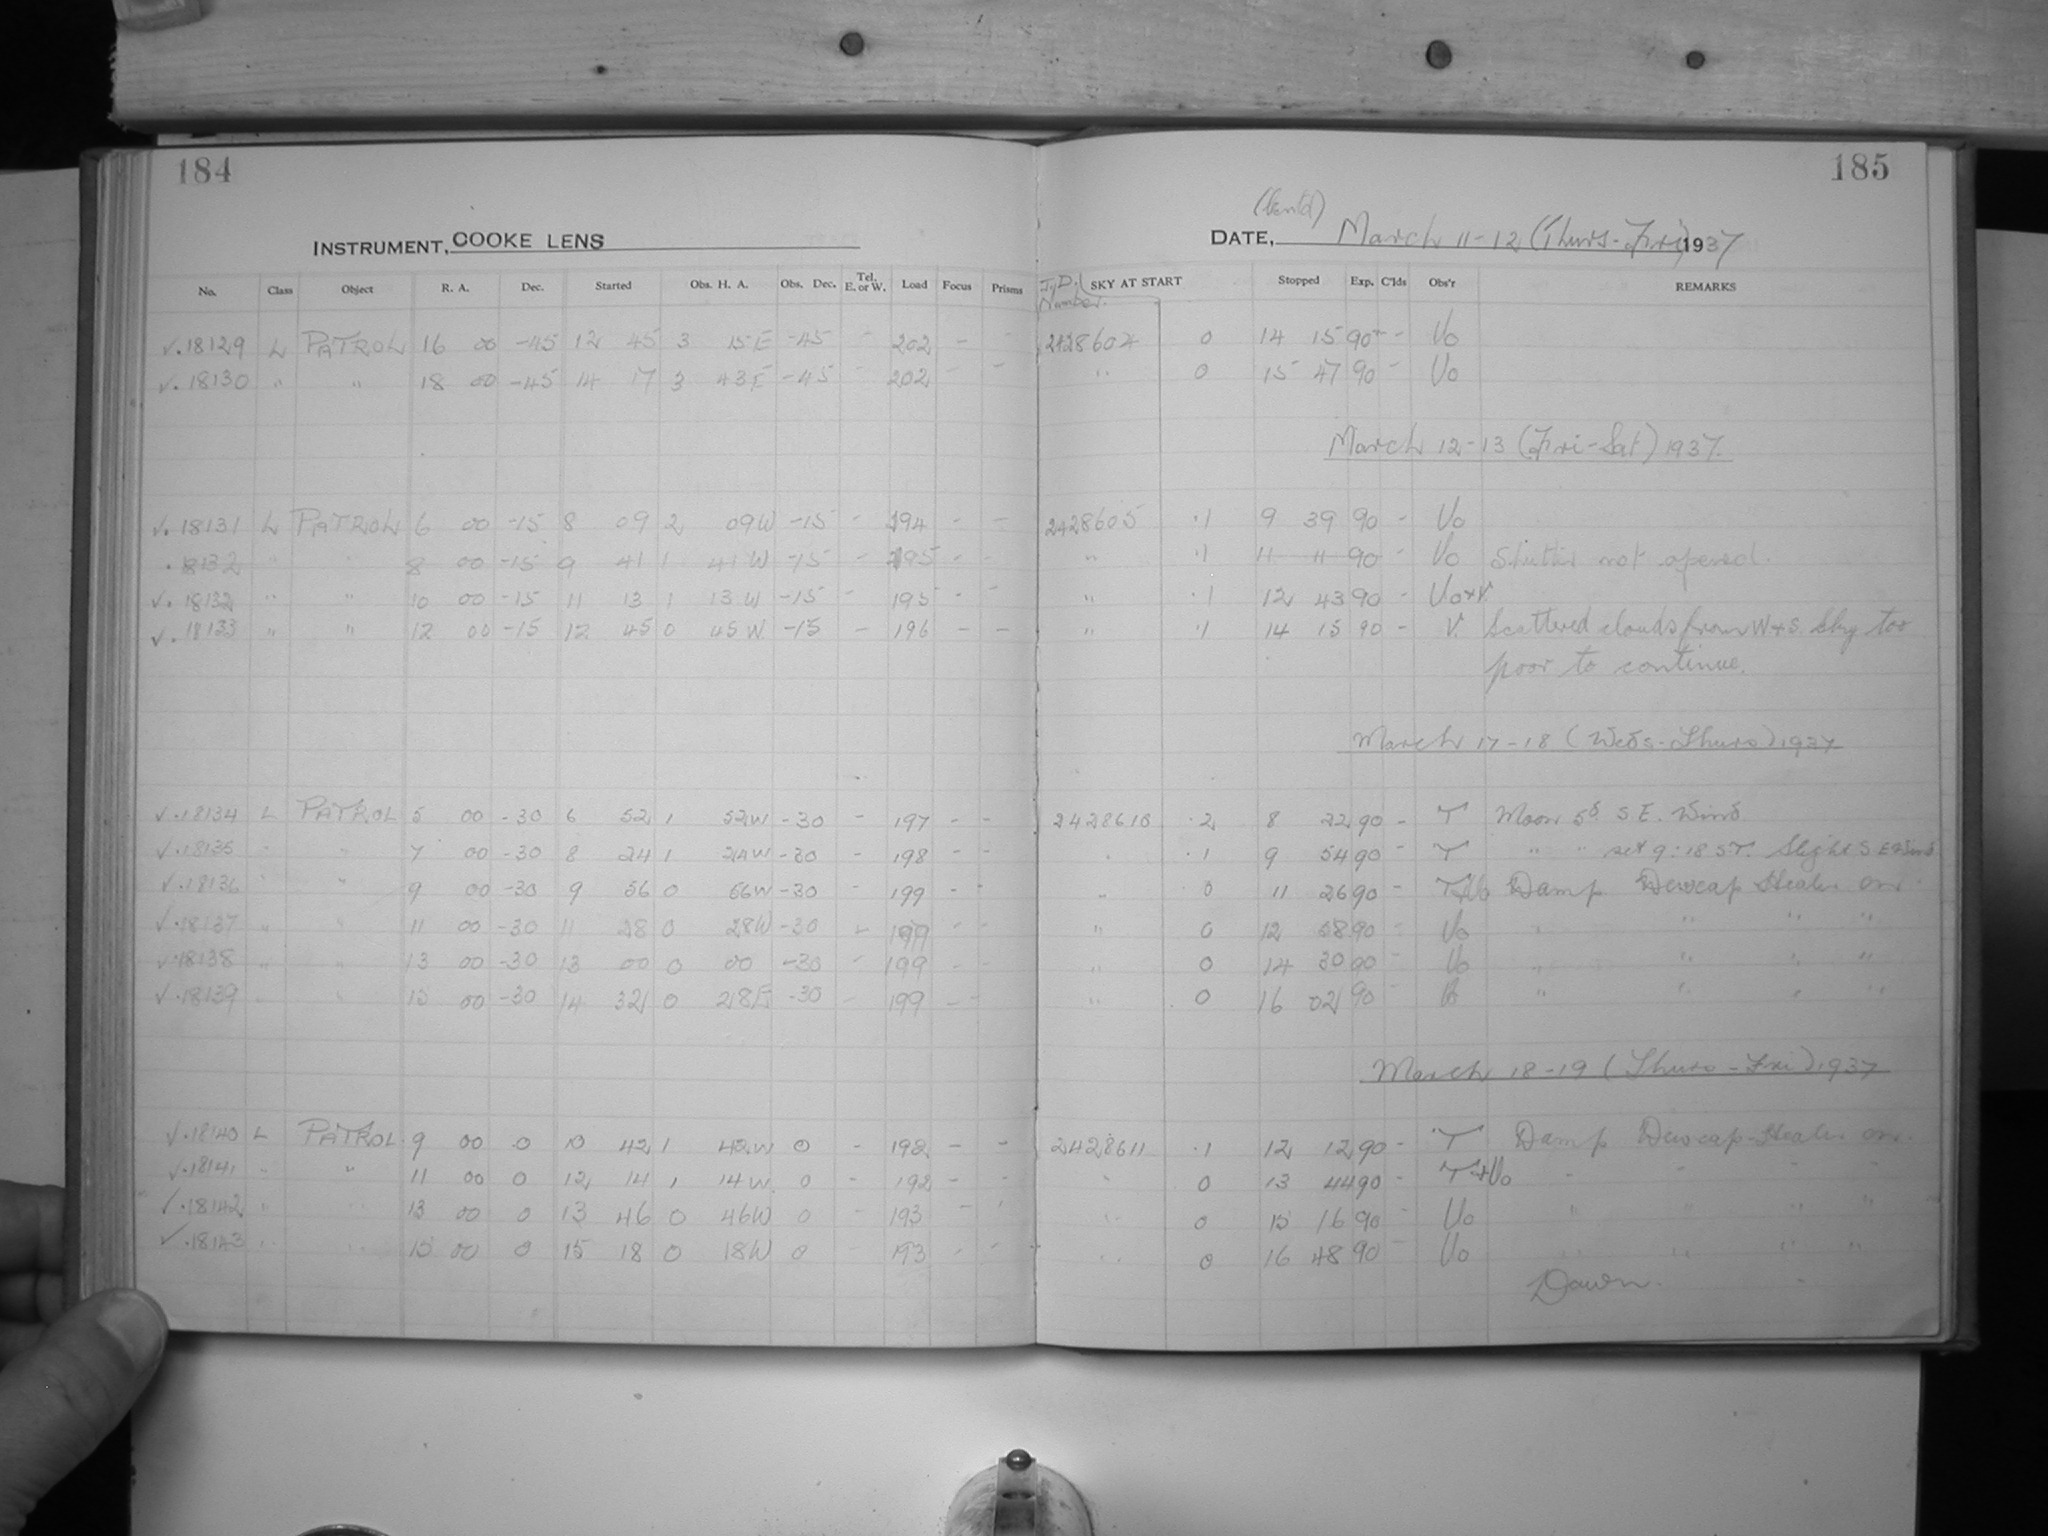 184
185
(Contd)
INSTRUMENT, COOKE LENS
DATE, March 11-12 (Thurs-Fri) 1937
No. Class Object R. A. Dec. Started Obs. H. A. Obs. Dec. Tel. E. or W. Load Focus Prisms J.D. Number. SKY AT START Stopped Exp. C'lds Obs'r REMARKS
✓.18129 L PATROL 16 00 -45 12 45 3 15E -45 - 202 - - 2428604 0 14 15 90 - Vo
✓.18130 " " 18 00 -45 14 17 3 43E -45 - 202 - - " 0 15 47 90 - Vo
March 12-13 (Fri-Sat) 1937.
✓.18131 L PATROL 6 00 -15 8 09 2 09W -15 - 194 - - 2428605 .1 9 39 90 - Vo
.18132 " " 8 00 -15 9 41 1 41W -15 - 195 - - " .1 11 11 90 - Vo Shutter not opened.
✓.18132 " " 10 00 -15 11 13 1 13W -15 - 195 - - " .1 12 43 90 - Vo+V
✓.18133 " " 12 00 -15 12 45 0 45W -15 - 196 - - " .1 14 15 90 - V. Scattered clouds from W+S. Sky too
poor to continue.
March 17-18 (Weds-Thurs) 1937
✓.18134 L PATROL 5 00 -30 6 52 1 52W -30 - 197 - - 2428610 .2 8 22 90 - T Moon 5d. S E. Wind
✓.18135 " " 7 00 -30 8 24 1 24W -30 - 198 - - " .1 9 54 90 - T " " set 9:18 ST. Slight S E Wind
✓.18136 " " 9 00 -30 9 56 0 56W -30 - 199 - - " 0 11 26 90 - T+Vo Damp Dewcap Heater on.
✓.18137 " " 11 00 -30 11 28 0 28W -30 - 199 - - " 0 12 58 90 - Vo " " " "
✓.18138 " " 13 00 -30 13 00 0 00 -30 - 199 - - " 0 14 30 90 - Vo " " " "
✓.18139 " " 15 00 -30 14 32 0 28E -30 - 199 - - " 0 16 02 90 - " " " "
March 18-19 (Thurs-Fri) 1937
✓.18140 L PATROL 9 00 0 10 42 1 42W 0 - 192 - - 2428611 .1 12 12 90 - T Damp Dewcap-Heater on.
✓.18141 " " 11 00 0 12 14 1 14W 0 - 192 - - " 0 13 44 90 - T+Vo " " " "
✓.18142 " " 13 00 0 13 46 0 46W 0 - 193 - - " 0 15 16 90 - Vo " " " "
✓.18143 " " 15 00 0 15 18 0 18W 0 - 193 - - " 0 16 48 90 - Vo " " " "
Dawn.